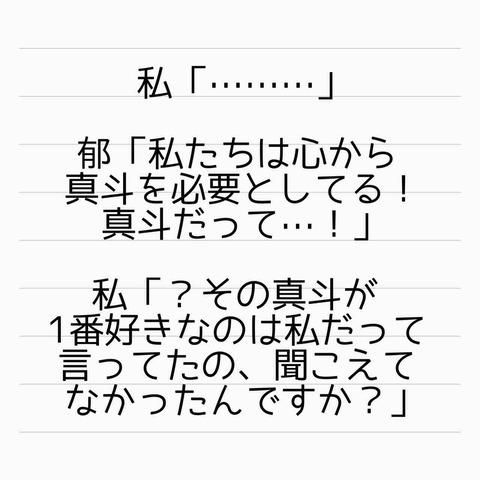 私「………」
郁「私たちは心から
真斗を必要としてる！
真斗だって…！」
私「？その真斗が
1番好きなのは私だって
言ってたの、聞こえて
なかったんですか？」